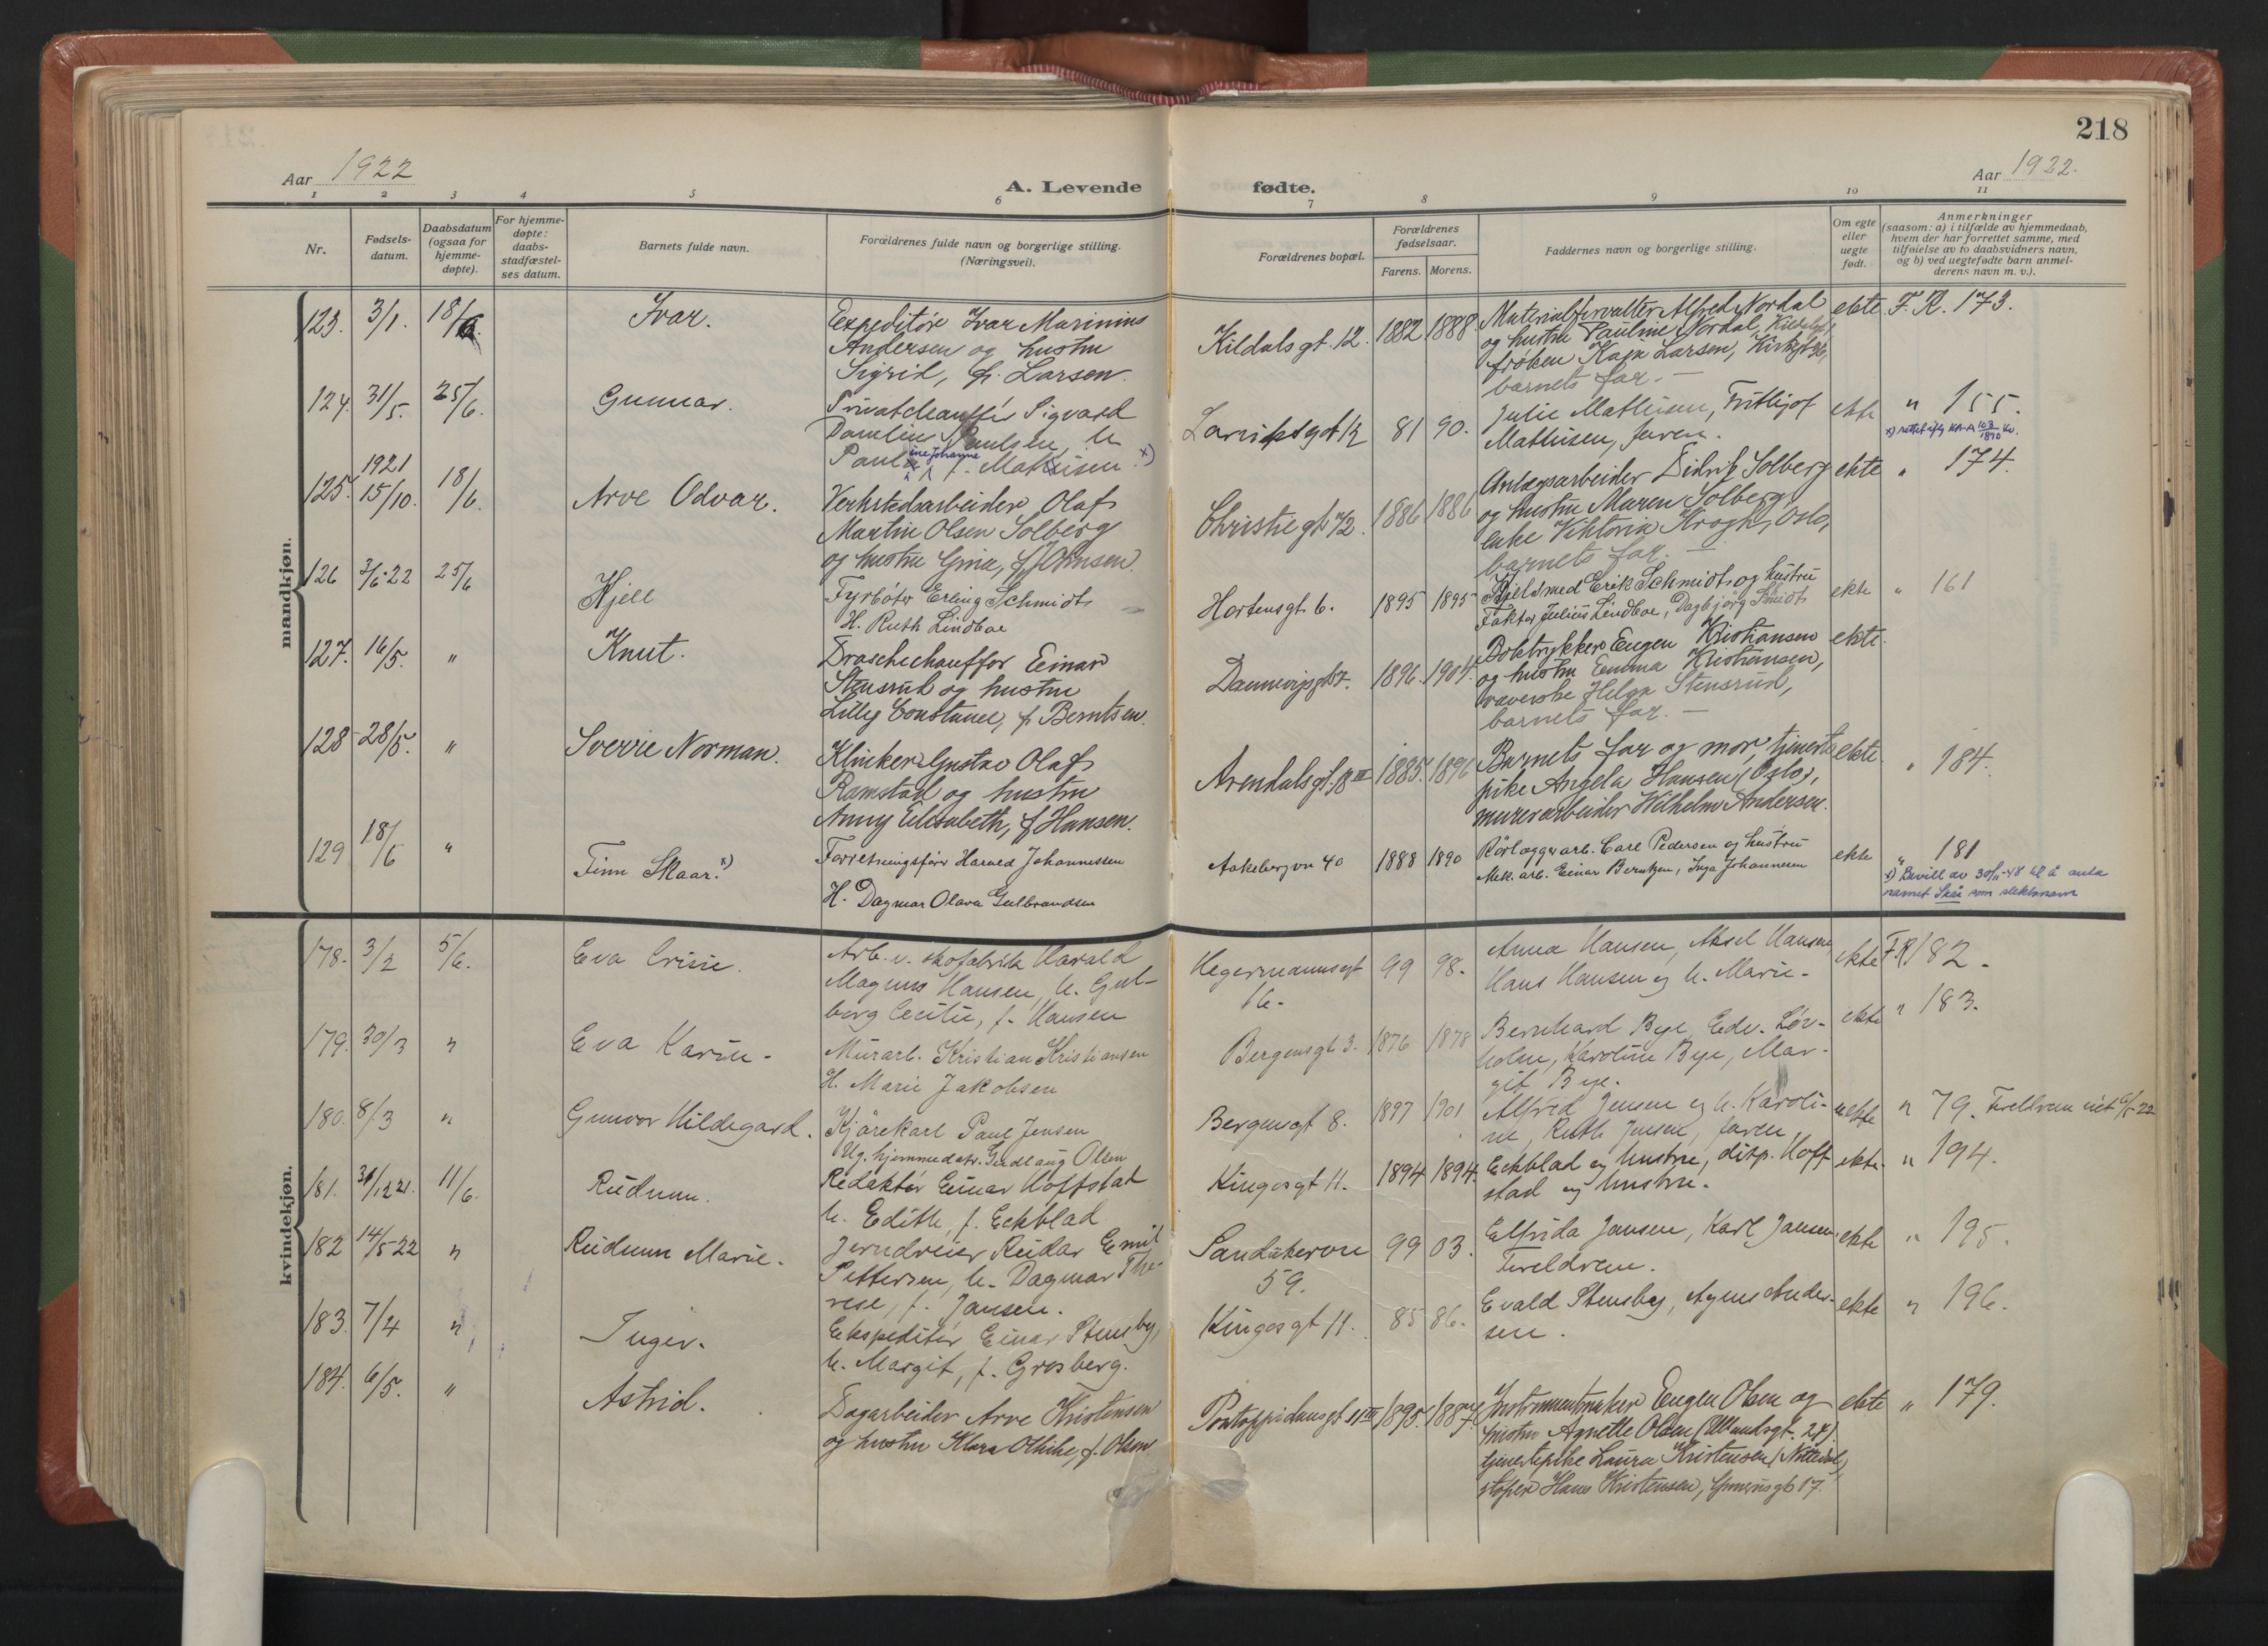 218
Aar 1922
Aar 1922.
A. Levende fødte.
1 2 3 4 5 6 7 8 9 10 11
Nr.
Fødsels-
datum.
Daabsdatum
(ogsaa for
hjemme-
døpte).
For hjemme-
døpte:
daabs-
stadfæstel-
ses datum.
Barnets fulde navn.
Forældrenes fulde navn og borgerlige stilling.
(Næringsvei).
Forældrenes bopæl.
Forældrenes
fødselsaar.
Farens. Morens.
Faddernes navn og borgerlige stilling.
Om egte
eller
uegte
født.
Anmerkninger
(saasom: a) i tilfælde av hjemmedaab,
hvem der har forrettet samme, med
tilføielse av to daabsvidners navn,
og b) ved uegtefødte barn anmel-
derens navn m. v.).
mandkjøn.
123. 3/1. 18/6. Ivar.
Expeditør Ivar Marinius
Andersen og hustru
Sigrid, f. Larsen.
Kildalsgt. 12. 1882 1888
Materialforvalter Alfred Nordal
og hustru Pauline Nordal,
frøken Kaja Larsen,
barnets far. —
ekte F. R. 173.
124. 31/5. 25/6. Gunnar.
Privatchauffér Sigvard
Paulsen, h
Pauline Johanne f. Mathisen. x)
Larviksgt 12 81 90.
Julie Mathisen, Frithjof
Mathisen, faren.
ekte " 155.
x) rettet iflg KA-A 103/1890 Kv.
125. 1921 15/10. 18/6. Arve Odvar.
Verkstedsarbeider Olaf
Martin Olsen Solberg
og hustru Gina, f. Johnsen.
Christiegt 12. 1886 1886
Anlægsarbeider Didrik Solberg
og hustru Maren Solberg,
enke Viktoria Krogh, Oslo,
barnets far. —
ekte " 174.
126 3/6-22 25/6 Kjell
Fyrbøter Erling Schmidt
H. Ruth Lindboe
Hortensgt 6. 1895 1895
Kjelsmed Erik Schmidt og hustru
Faktor Julius Lindboe, Dagbjørg Smidt
ekte " 161
127. 16/5. " Knut.
Droschechauffør Einar
Stensrud og hustru
Lilly Constance, f. Berntsen.
Dannevigsgt 7. 1896. 1904.
Boktrykker Eugen Kristiansen
og hustru Emma Kristiansen,
væverske Helga Stensrud,
barnets far. —
ekte.
128 28/5. " Sverre Norman.
Klinker Gustav Olaf
Ramstad og hustru
Anny Elisabeth, f. Hansen.
Arendalsgt. 18 III 1885. 1896
Barnets far og mor, tjeneste
pike Angela Hansen (Oslo),
murerarbeider Wilhelm Andersen.
ekte. " 184.
129 18/6 " Finn Skaar. x)
Forretningsfører Harald Johannessen
H. Dagmar Olava Gulbrandsen
Aakebergvn 40 1888 1890
Rørlæggerarb. Carl Pedersen og hustru
Mek. arb. Einar Berntzen, Inga Johannesen
ekte " 181
x) Bevill av 30/11-48 til å anta
navnet Skår som slektsnavn
kvindekjøn.
178. 3/2 5/6. Eva Crisie.
Arb. v. skofabrik Harald
Magnus Hansen, h. Gul-
borg Cecilie, f. Hansen
Hegermannsgt
16. 99 98.
Anna Hansen, Aksel Hansen,
Hans Hansen og h. Marie.
ekte F.R 182.
179. 30/3 " Eva Karin.
Murarb. Kristian Kristiansen
H. Marie Jakobsen
Bergensgt 3. 1876 1878
Bernhard Bye, Edv. Løv-
holm, Karoline Bye, Mar-
git Bye.
ekte " 183.
180. 8/3 " Gunvor Hildegard.
Kjørekarl Paul Jensen
Ug. hjemmedatr. Gudlaug Olsen
Bergensgt 8. 1897 1901
Alfred Jensen og h. Karoli-
ne, Ruth Jensen, faren.
uekte " 79. Foreldrene viet 6/5-22
181. 31/12 21. 11/6. Reidunn.
Redaktør Einar Hoffstad
h. Edith, f. Eckblad
Kingosgt 11. 1894 1894.
Eckblad og hustru, disp. Hoff-
stad og hustru.
ekte. " 194.
182 14/5-22 " Reidunn Marie.
Jerndreier Reidar Emil
Pettersen, h. Dagmar The-
rese, f. Jansen.
Sandakerveien
59. 99 03.
Elfrida Jansen, Karl Jansen,
Foreldrene.
ekte " 195.
183. 7/4 " Inger.
Ekspeditør Einar Stensby,
h. Margit, f. Grosberg.
Kingosgt 11. 85 86.
Evald Stensby, Agnes Ander-
sen.
ekte " 196.
184. 6/5. " Astrid.
Dagarbeider Arve Kristensen
og hustru Klara Othilie, f. Olsen
Pontoppidansgt 11 III 1895. 1887.
Instrumentmaker Eugen Olsen og
hustru Agnette Olsen (Ullandsgt. 27).
tjenestepike Laura Kristensen (Nittedal),
støper Hans Kristensen,
ekte " 179.